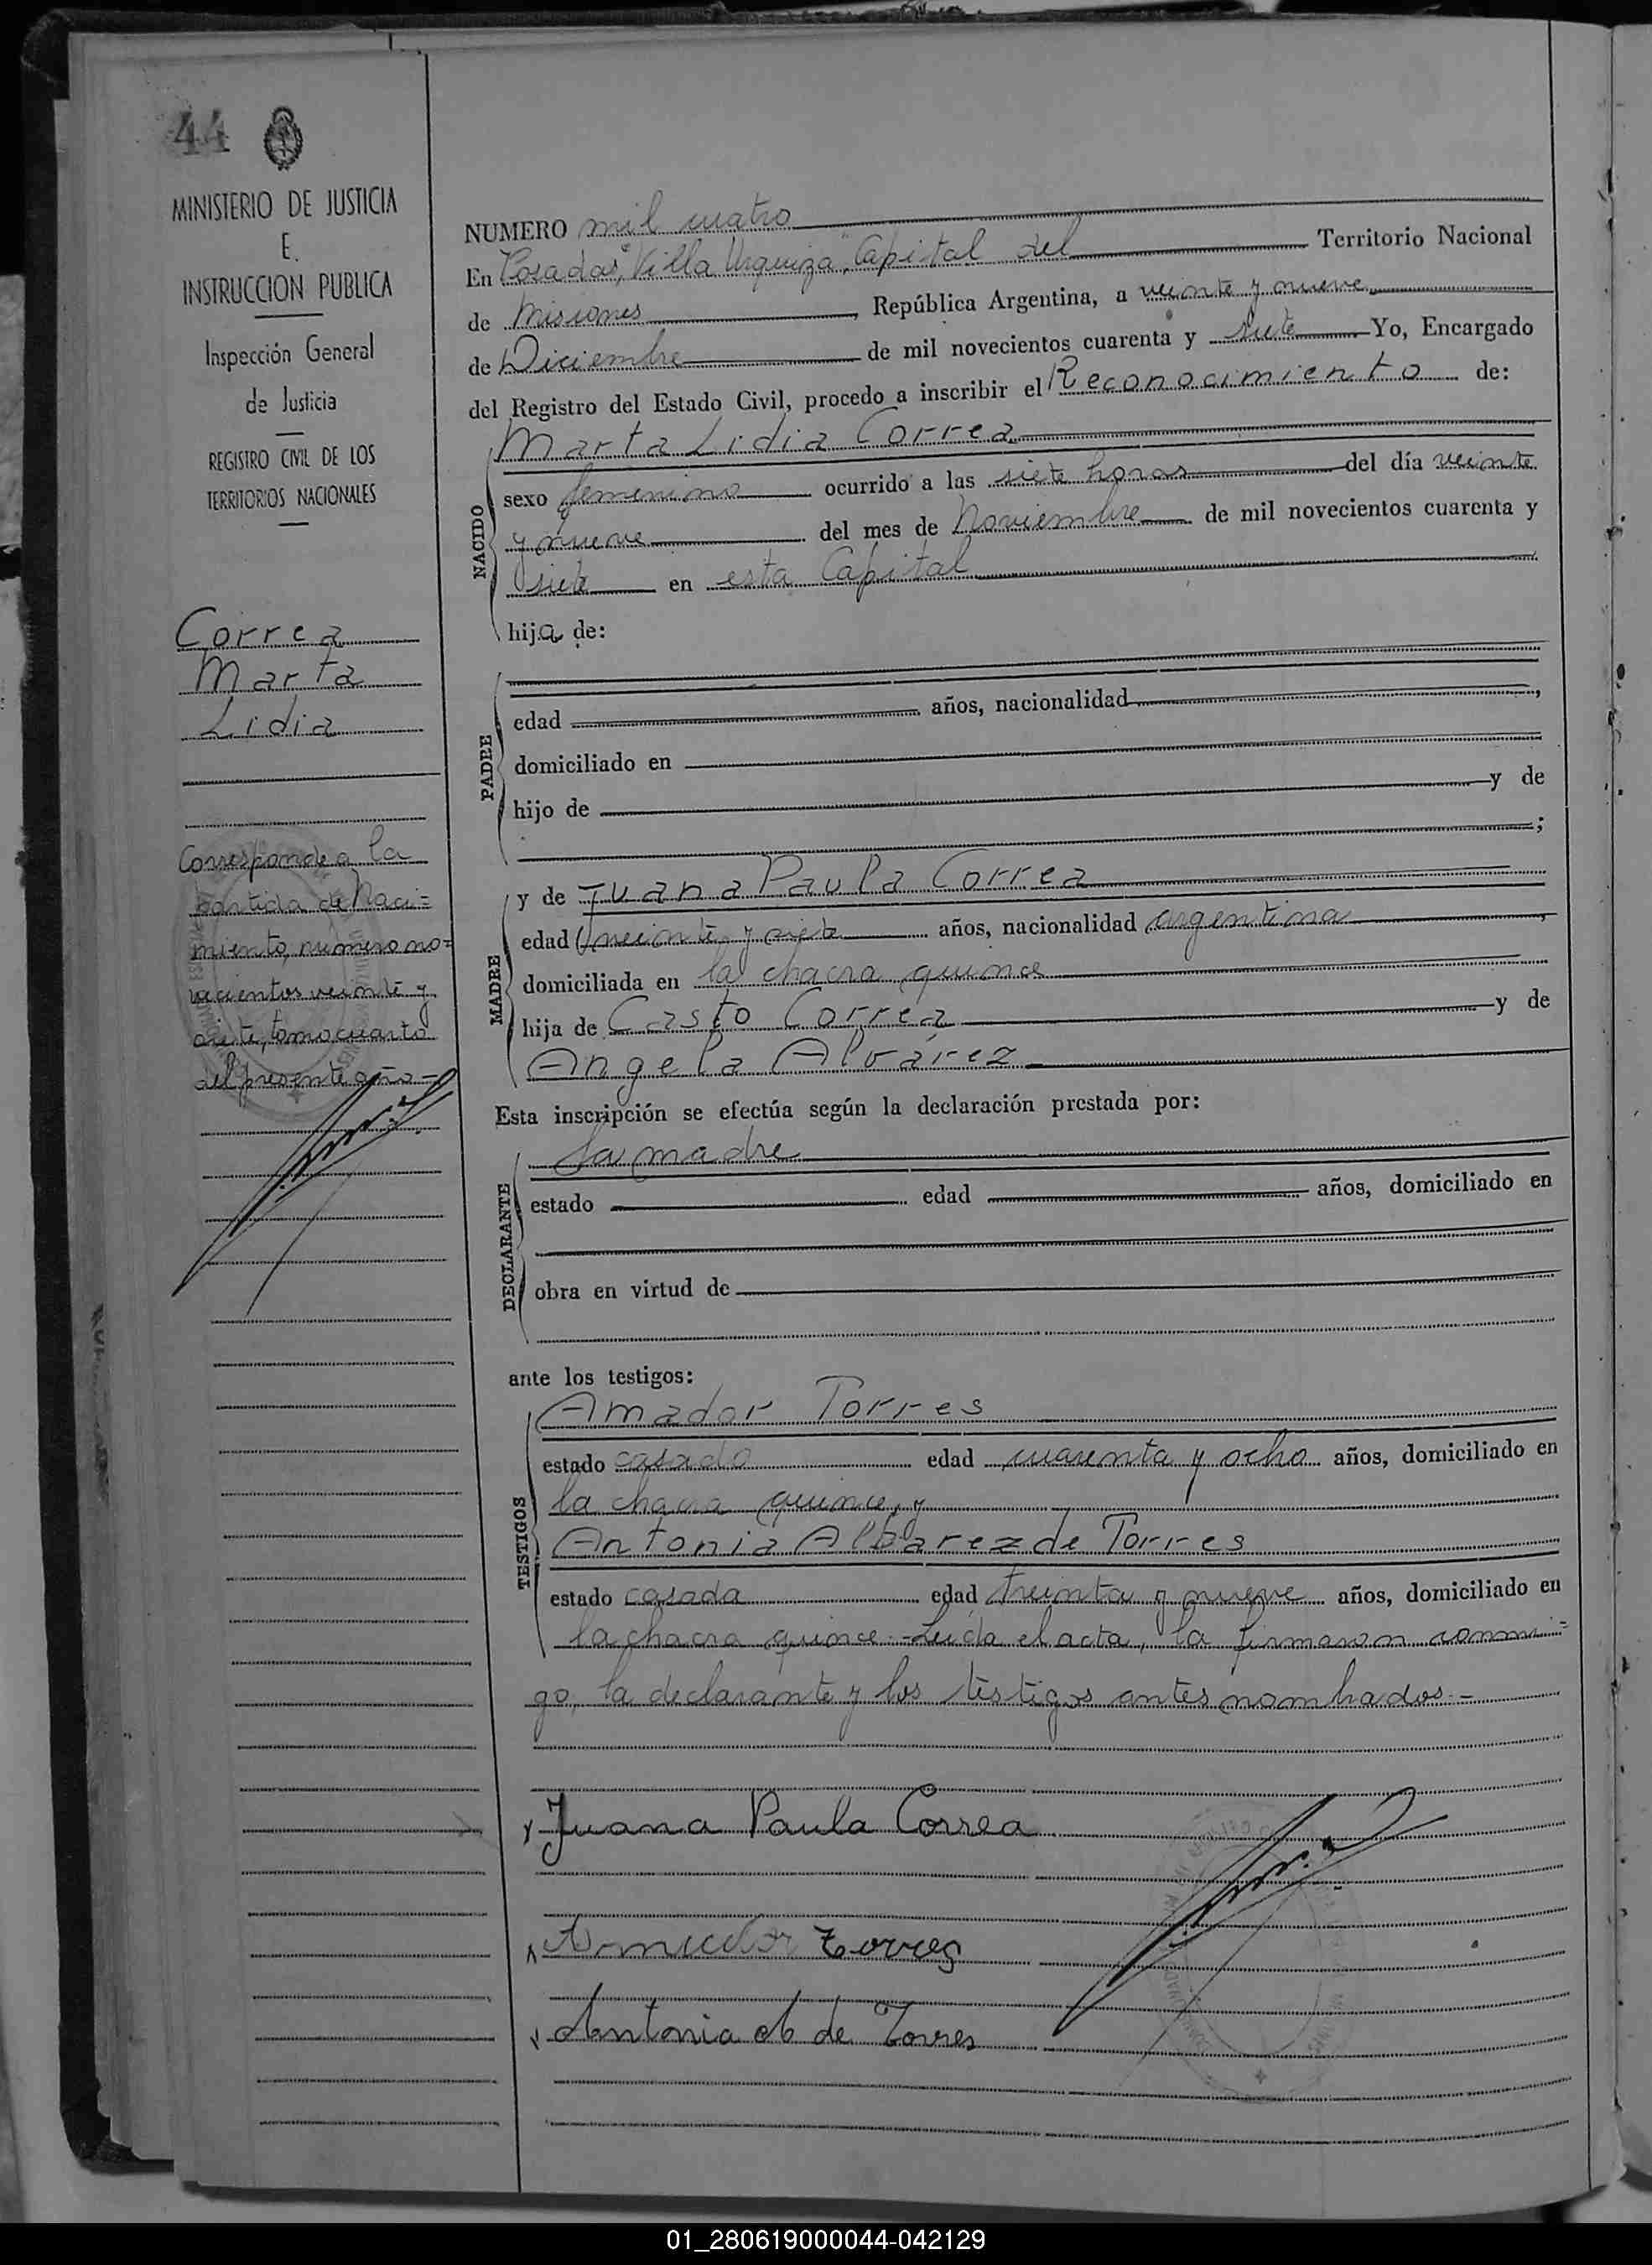 44
MINISTERIO DE JUSTICIA
E.
INSTRUCCION PUBLICA
Inspección General
de Justicia
REGISTRO CIVIL DE LOS
TERRITORIOS NACIONALES
Correa
Marta
Lidia
Corresponde a la
partida de Naci=
miento, numero no=
vecientos veinte y
siete, tomo cuarto
del presente año -
NUMERO mil cuatro
En Posadas, "Villa Urquiza", Capital del Territorio Nacional
de Misiones, República Argentina, a veinte y nueve
de Diciembre de mil novecientos cuarenta y siete Yo, Encargado
del Registro del Estado Civil, procedo a inscribir el Reconocimiento de:
NACIDO
Marta Lidia Correa
sexo femenino ocurrido a las siete horas del día veinte
y nueve del mes de Noviembre de mil novecientos cuarenta y
siete en esta Capital
hija de:
PADRE
edad años, nacionalidad ,
domiciliado en
hijo de y de
;
MADRE
y de Juana Paula Correa
edad veinte y siete años, nacionalidad argentina ,
domiciliada en la chacra quince
hija de Casto Correa y de
Angela Alvárez
Esta inscripción se efectúa según la declaración prestada por:
DECLARANTE
La madre
estado edad años, domiciliado en
obra en virtud de
ante los testigos:
TESTIGOS
Amador Torres
estado casado edad cuarenta y ocho años, domiciliado en
la chacra quince, y
Antonia Albarez de Torres
estado casada edad treinta y nueve años, domiciliado en
la chacra quince.- Leída el acta, la firmaron conmi=
go, la declarante y los testigos antes nombrados.-
Juana Paula Correa
Amador Torres
Antonia A de Torres
01_280619000044-042129